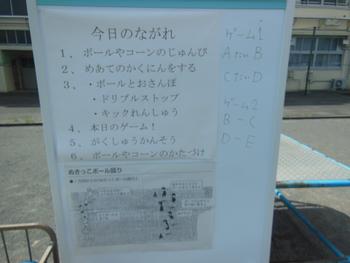 今日のながれ
1、ボールやコーンのじゅんび
2、めあてのかくにんをする
3、・ボールとおさんぽ
・ドリブルストップ
・キックれんしゅう
4、本日のゲーム!
5、がくしゅうかんそう
6、ボールやコーンのかたづけ
ぬきっこボール蹴り
ゲーム1
AたいB
CたいD
ゲーム2
B-C
D-E